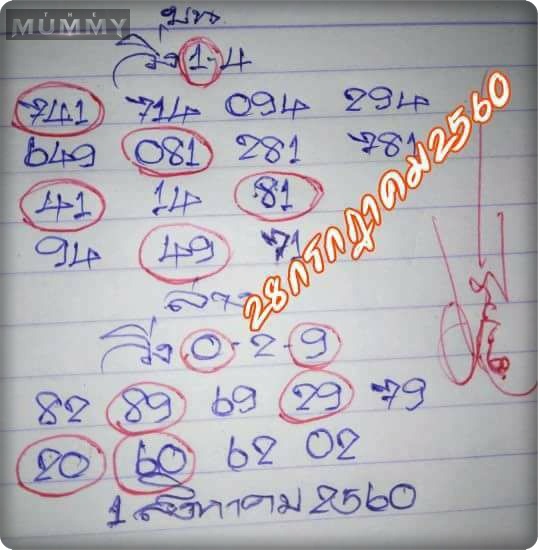 MUMMY
บน
วิ่ง 1-4
741 714 094 294
649 081 281 781
41 14 81
94 49 71
28กรกฎาคม2560
ล่าง
วิ่ง 0-2-9
82 89 69 29 79
20 60 62 02
1 สิงหาคม 2560